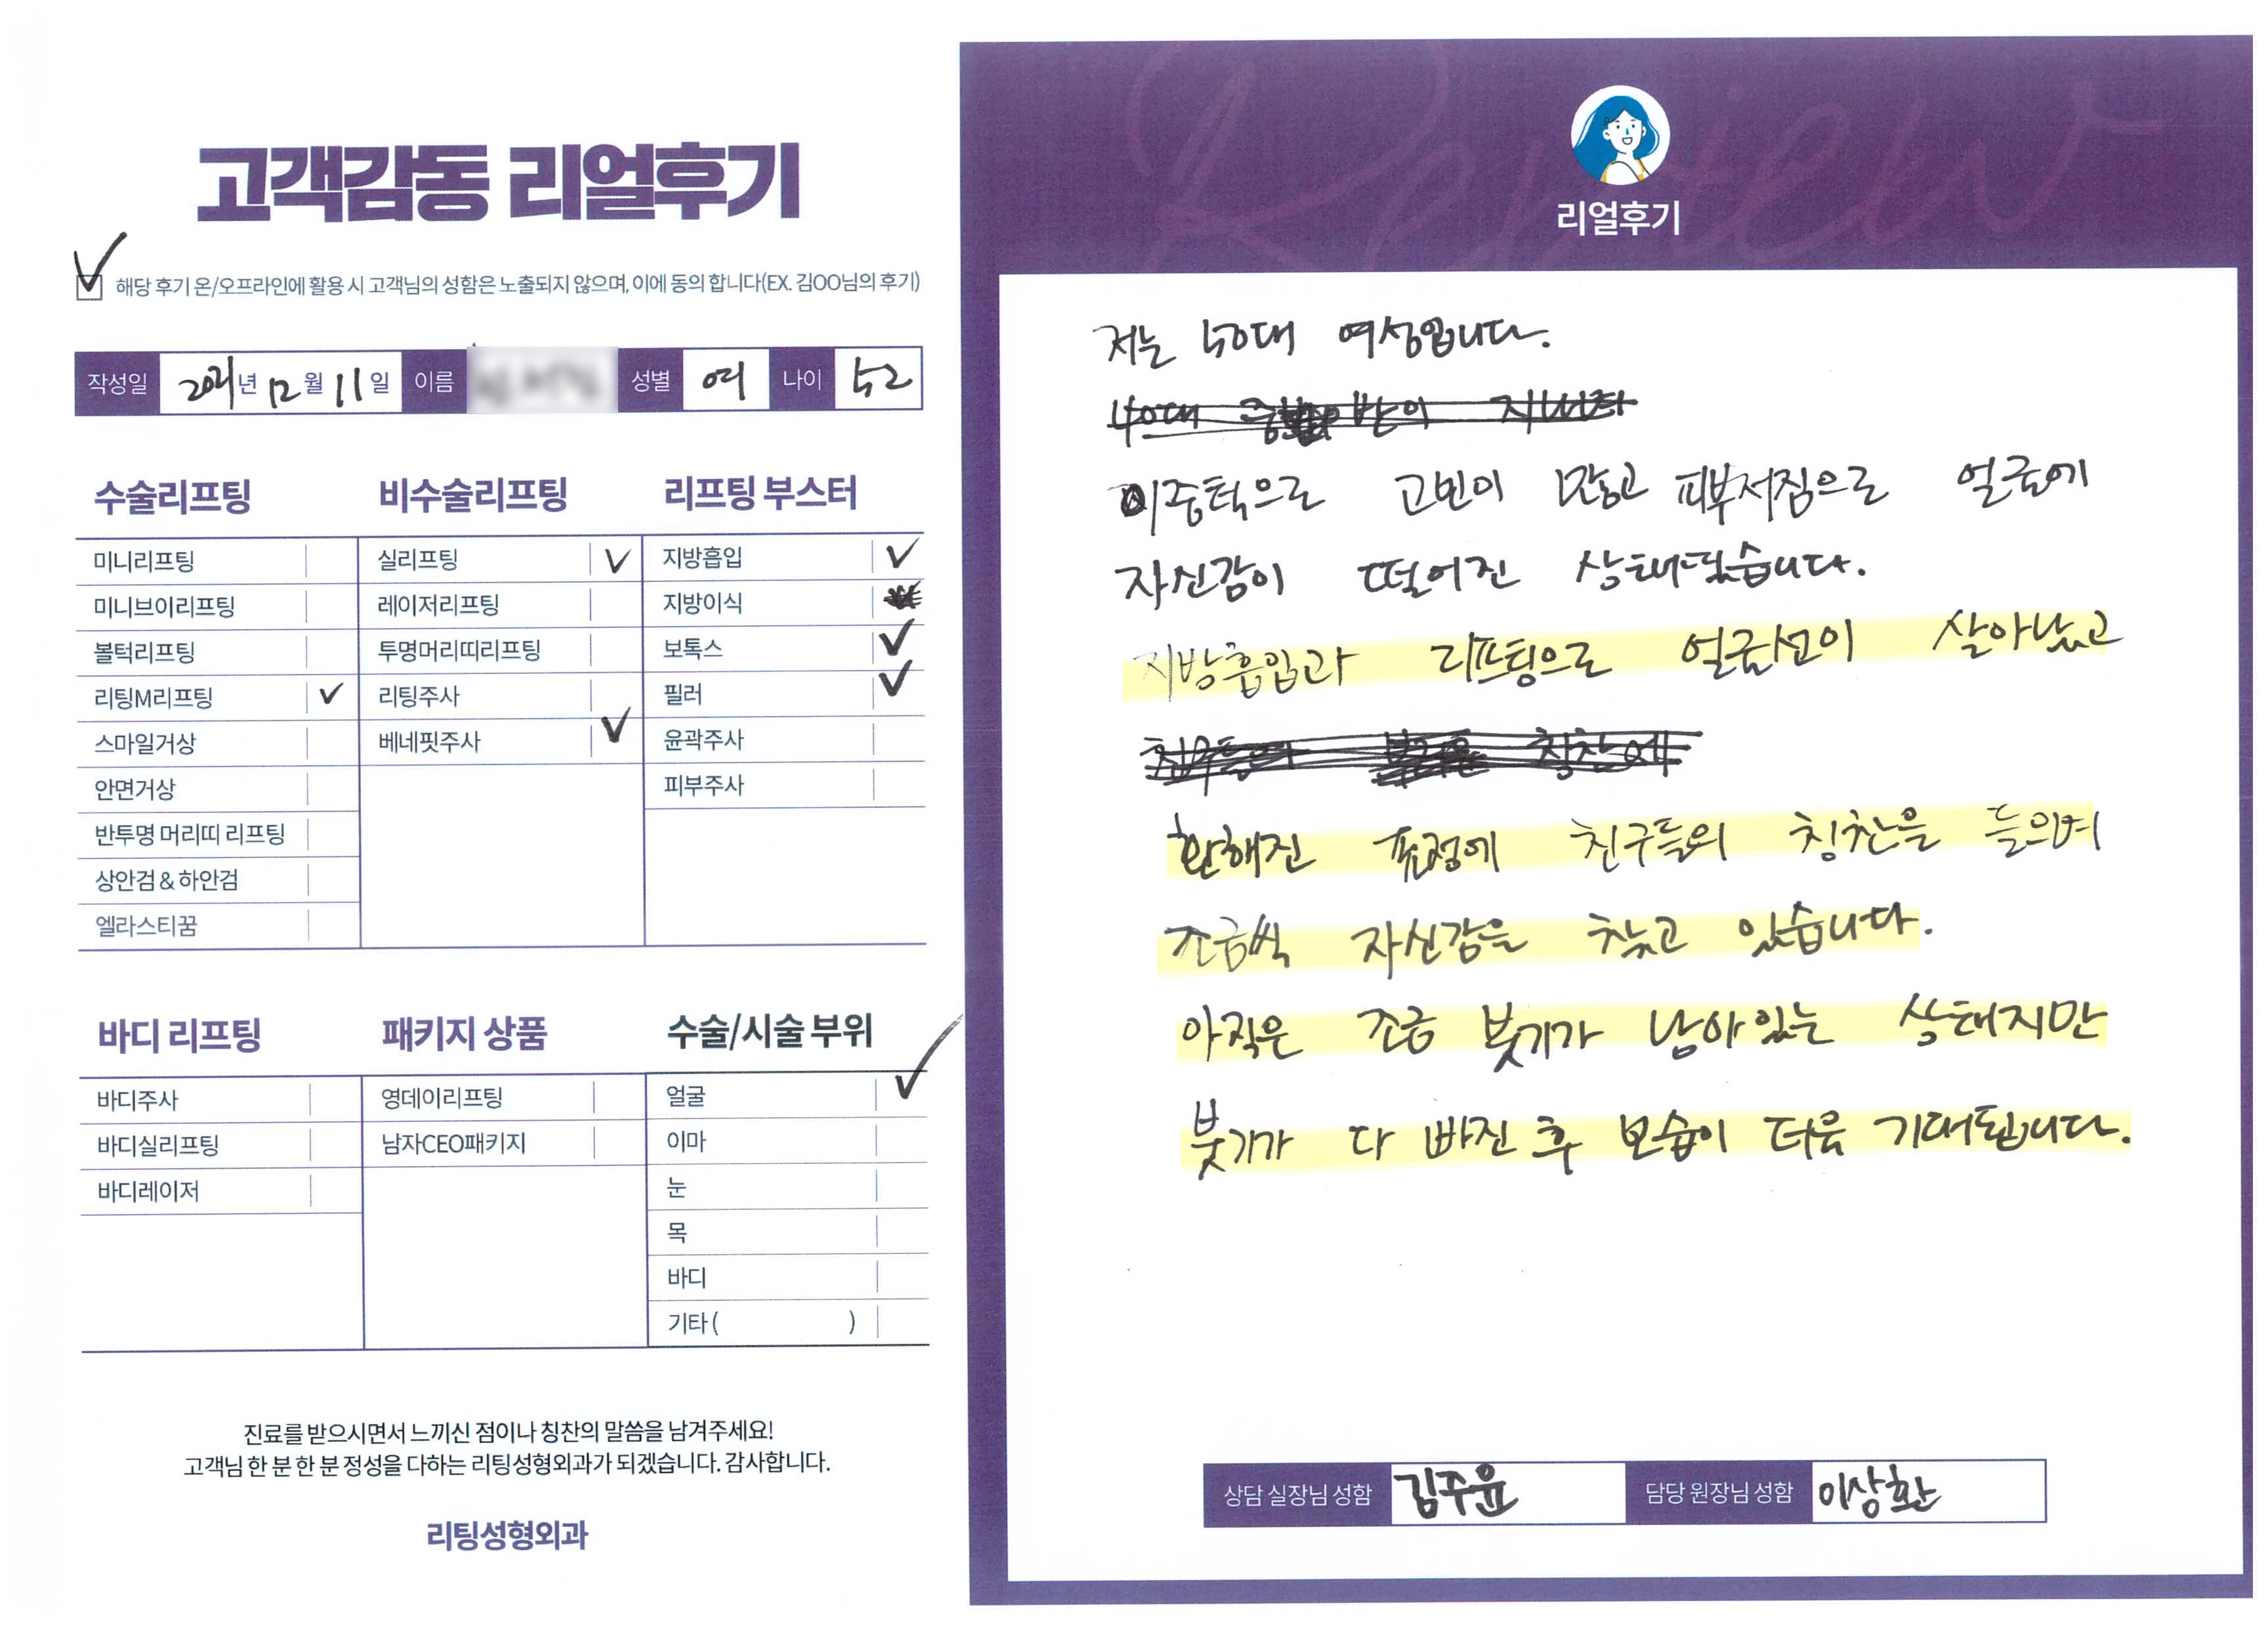 고객감동 리얼후기
해당 후기 온/오프라인에 활용 시 고객님의 성함은 노출되지 않으며, 이에 동의 합니다(EX. 김OO님의 후기)
작성일 2021년 12월 11일 이름 성별 여 나이 52
수술리프팅
미니리프팅
미니브이리프팅
볼턱리프팅
리팅M리프팅
스마일거상
안면거상
반투명 머리띠 리프팅
상안검 & 하안검
엘라스티꿈
비수술리프팅
실리프팅
레이저리프팅
투명머리띠리프팅
리팅주사
베네핏주사
리프팅 부스터
지방흡입
지방이식
보톡스
필러
윤곽주사
피부주사
바디 리프팅
바디주사
바디실리프팅
바디레이저
패키지 상품
영데이리프팅
남자CEO패키지
수술/시술 부위
얼굴
이마
눈
목
바디
기타 ( )
진료를 받으시면서 느끼신 점이나 칭찬의 말씀을 남겨주세요!
고객님 한 분 한 분 정성을 다하는 리팅성형외과가 되겠습니다. 감사합니다.
리팅성형외과
Review
리얼후기
저는 50대 여성입니다.
이중턱으로 고민이 많고 피부처짐으로 얼굴에
자신감이 떨어진 상태였습니다.
지방흡입과 리프팅으로 얼굴선이 살아났고
환해진 표정에 친구들의 칭찬을 들으며
조금씩 자신감을 찾고 있습니다.
아직은 조금 붓기가 남아있는 상태지만
붓기가 다 빠진 후 모습이 더욱 기대됩니다.
상담 실장님 성함 김주윤 담당 원장님 성함 이상환